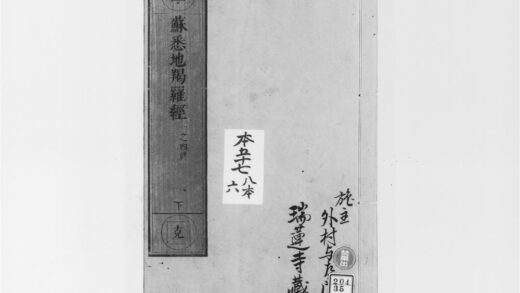 蘇悉地羯羅經
下
克
本五十七
八本
六
施主
外村与左
瑞蓮寺藏
204
35